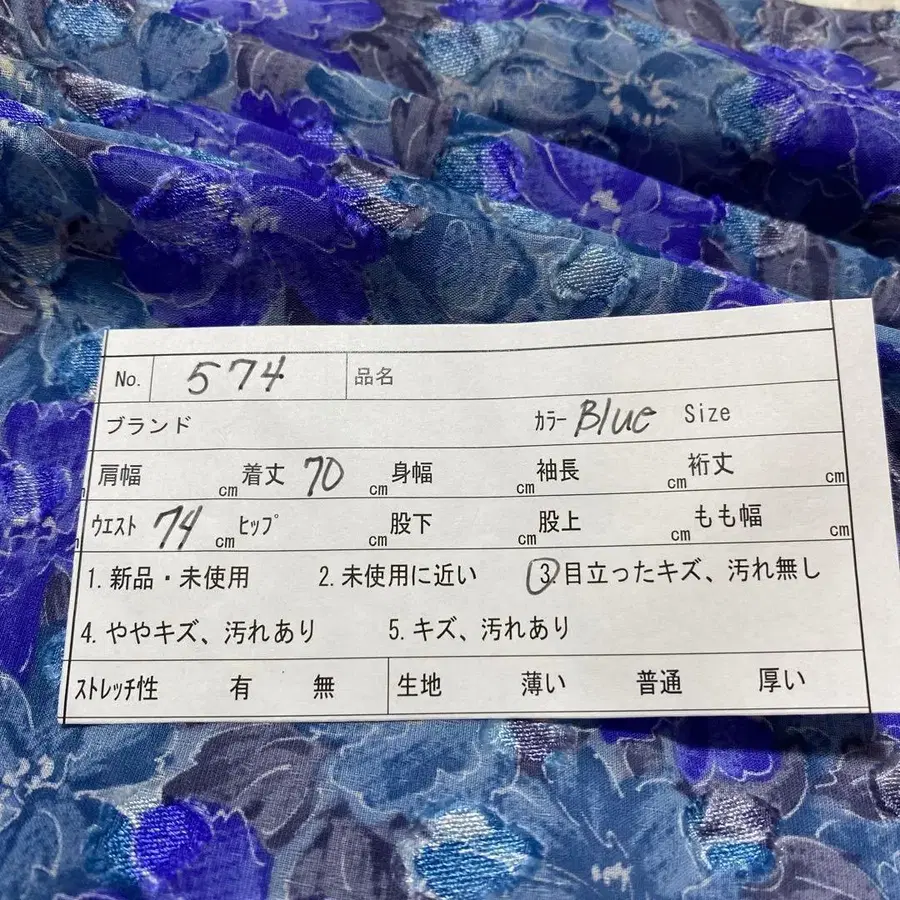 No. 574 品名
ブランド ｶﾗｰ Blue Size
肩幅 cm 着丈 70 cm 身幅 cm 袖長 cm 裄丈 cm
ｳｴｽﾄ 74 cm ﾋｯﾌﾟ cm 股下 cm 股上 cm もも幅 cm
1. 新品・未使用 2. 未使用に近い 3 目立ったキズ、汚れ無し
4. ややキズ、汚れあり 5. キズ、汚れあり
ｽﾄﾚｯﾁ性 有 無 生地 薄い 普通 厚い